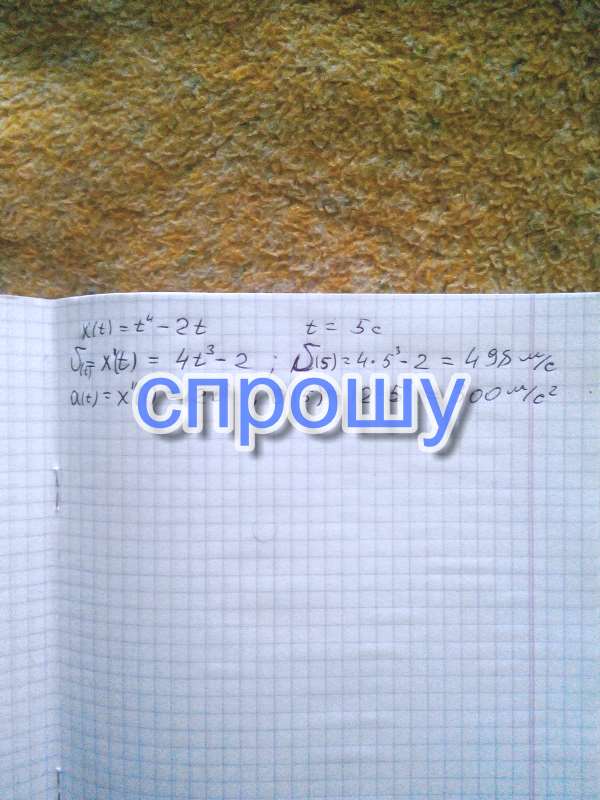 x(t) = t⁴ - 2t t = 5c
υ(t) = x'(t) = 4t³ - 2 ; υ(5) = 4·5³ - 2 = 498 м/с
a(t) = x'' 00 м/с²
спрошу